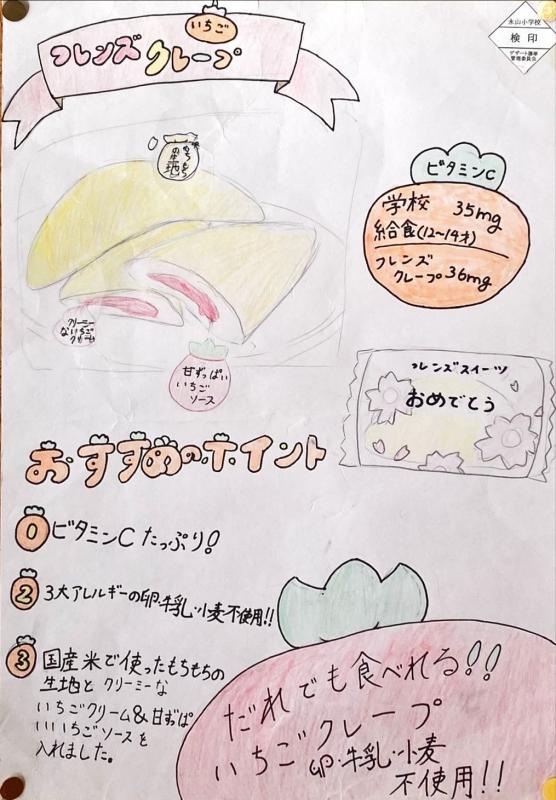 いちご
フレンズクレープ
永山小学校
検印
デザート選挙
管理委員会
もちもち
の生地
ビタミンC
学校
給食(12~14才) 35mg
フレンズ
クレープ 36mg
クリーミー
ないちご
クリーム
甘ずっぱい
いちご
ソース
フレンズスイーツ
おめでとう
おすすめのポイント
1 ビタミンCたっぷり!
2 3大アレルギーの卵・牛乳・小麦不使用!!
3 国産米で使ったもちもちの
生地とクリーミーな
いちごクリーム&甘ずっぱ
いいちごソースを
入れました。
だれでも食べれる!!
いちごクレープ
卵・牛乳・小麦
不使用!!